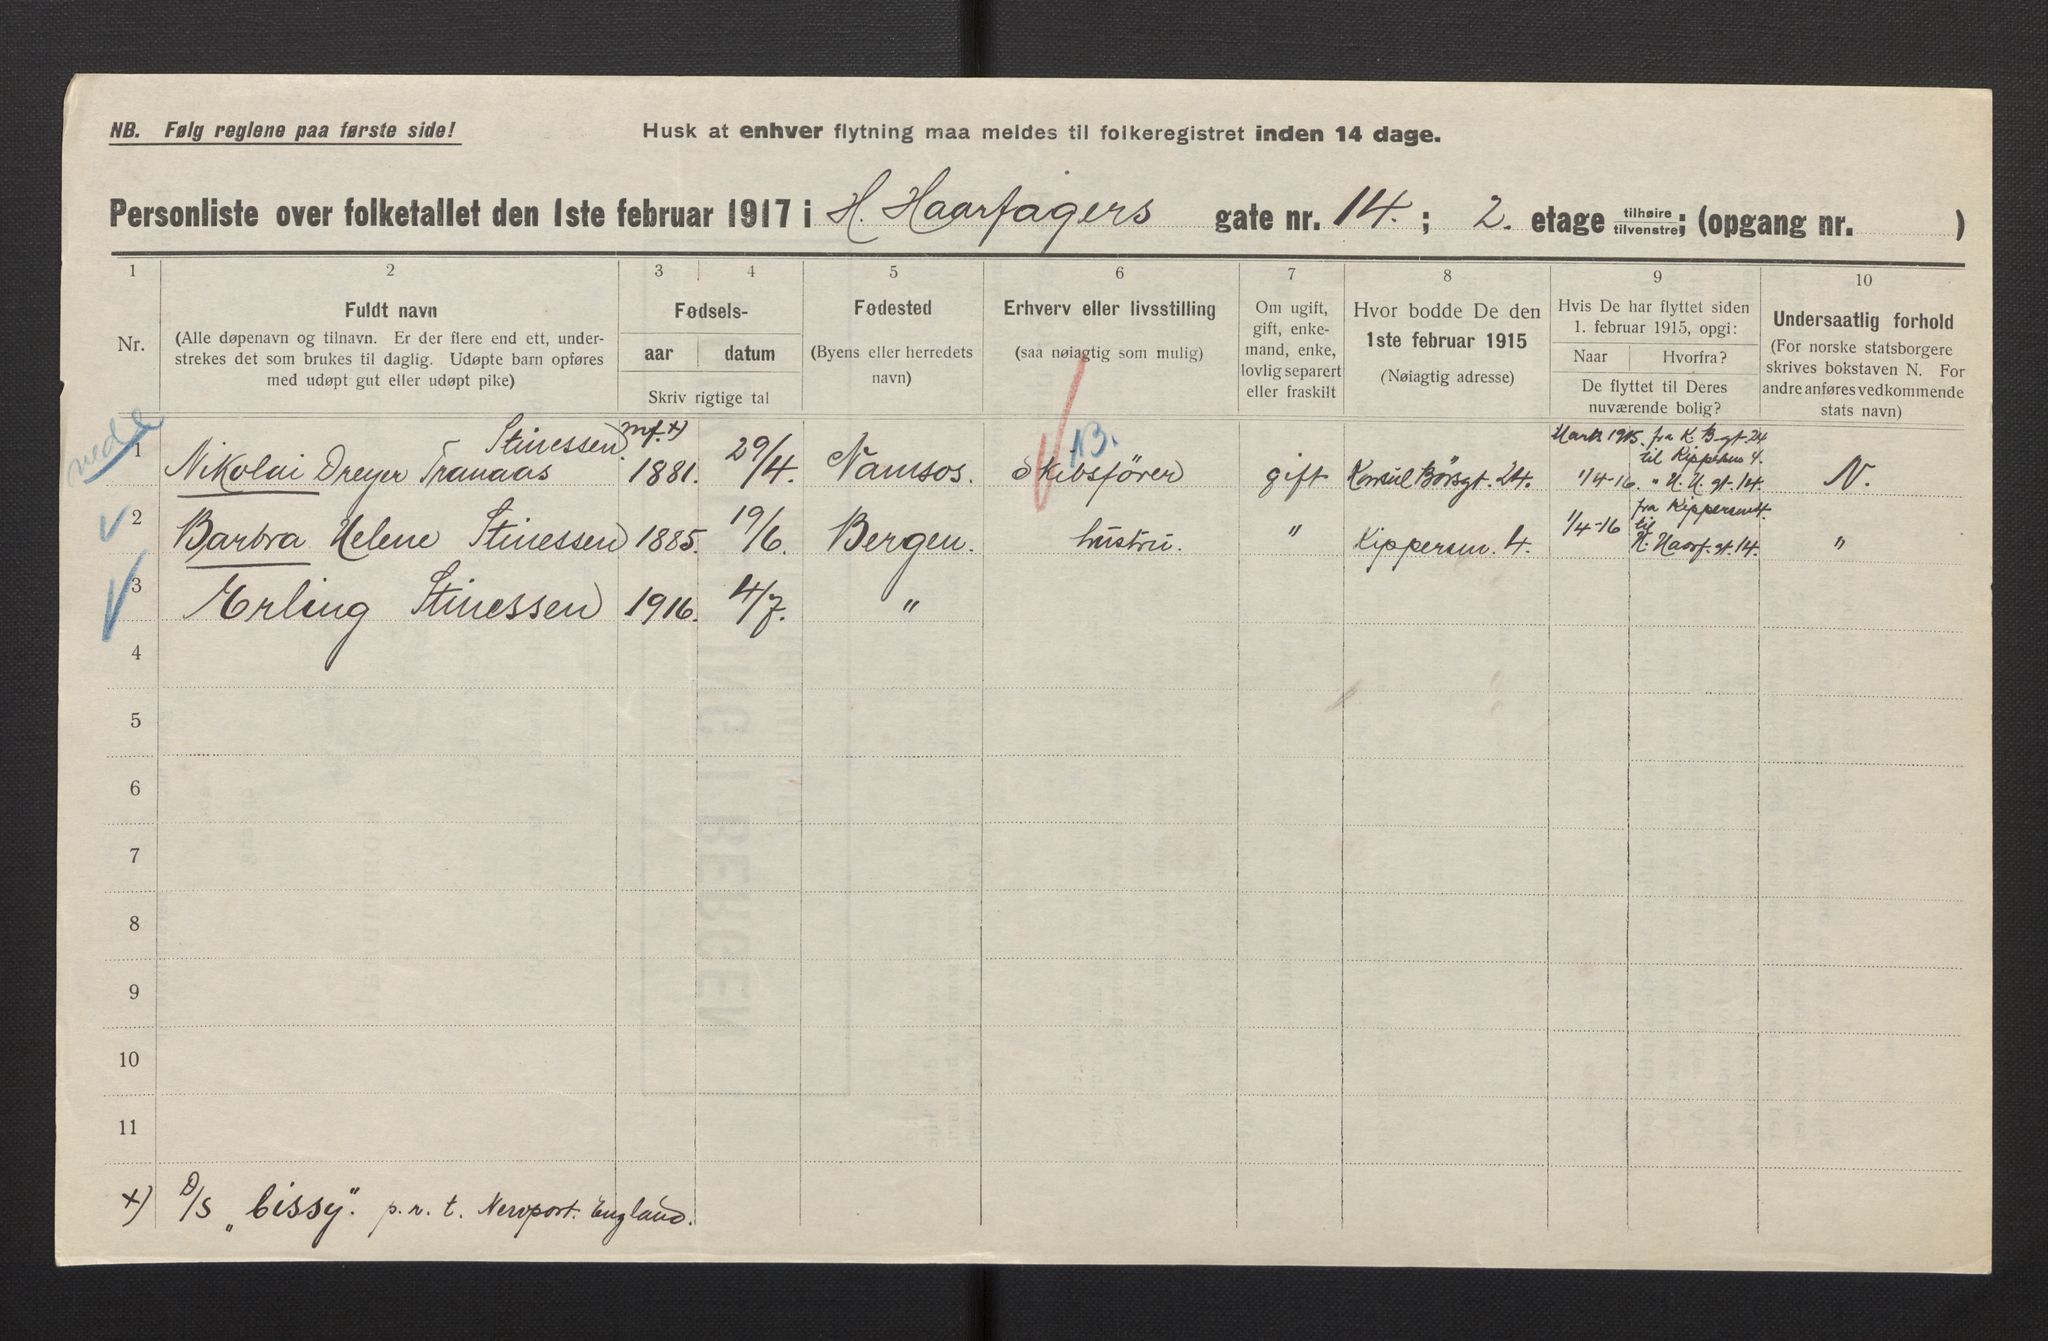 NB. Følg reglene paa første side!
Husk at enhver flytning maa meldes til folkeregistret inden 14 dage.
Personliste over folketallet den 1ste februar 1917 i H. Haarfagers gate nr. 14. ; 2. etage tilhøire tilvenstre; (opgang nr. )
1 2 3 4 5 6 7 8 9 10
Nr.
Fuldt navn
(Alle døpenavn og tilnavn. Er der flere end ett, under-
strekes det som brukes til daglig. Udøpte barn opføres
med udøpt gut eller udøpt pike)
Fødsels-
aar datum
Skriv rigtige tal
Fødested
(Byens eller herredets
navn)
Erhverv eller livsstilling
(saa nøiagtig som mulig)
Om ugift,
gift, enke-
mand, enke,
lovlig separert
eller fraskilt
Hvor bodde De den
1ste februar 1915
(Nøiagtig adresse)
Hvis De har flyttet siden
1. februar 1915, opgi:
Naar Hvorfra?
De flyttet til Deres
nuværende bolig?
Undersaatlig forhold
(For norske statsborgere
skrives bokstaven N. For
andre anføres vedkommende
stats navn)
Stinessen. mf. +) NB. Marts 1915. fra K. B. gt. 24
til Kippersm 4.
1 Nikolai Dreyer Tranaas 1881. 29/4. Namsos. Skibsfører gift Konsul Børsgt. 24. 1/4-16. " H. H. gt. 14. N.
fra Kippersm 4.
2 Barbra Helene Stinessen 1885. 19/6. Bergen. hustru. " Kippersm. 4. 1/4-16 til
H. Haarf. gt. 14. "
3 Erling Stinessen 1916. 4/7. "
4
5
6
7
8
9
10
11
+) D/S "Cissy". p. r. t. Newport. England.